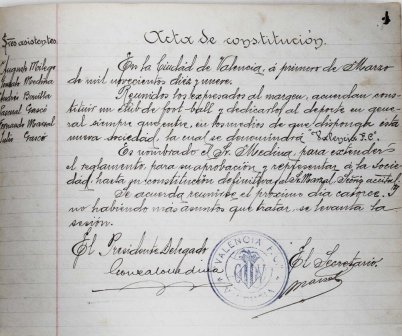 1
Acta de constitución.
Sres asistentes
Augusto Milego
Gonzalo Medina
Andrés Bonilla
Pascual Gascó
Fernando Marzal
Julio Gascó
En la Ciudad de Valencia, á primero de Marzo
de mil novecientos diez y nueve.
Reunidos los expresados al margen, acuerdan cons-
tituir un Club de foot-ball y dedicarlo al deporte en gene-
ral siempre que entre, en los medios de que disponga esta
nueva sociedad, la cual se denominará "Valencia F.C."
Es nombrado el Sr. Medina, para extender
el reglamento, para su aprobación y representar á la Socie-
dad, hasta su constitución definitiva
Se acuerda reunirse el próximo día catorce. Y
no habiendo más asuntos que tratar se levanta la
sesión.
El Presidente Delegado
Gonzalo Medina
VALENCIA F.C.
El Secretario.
Marzal